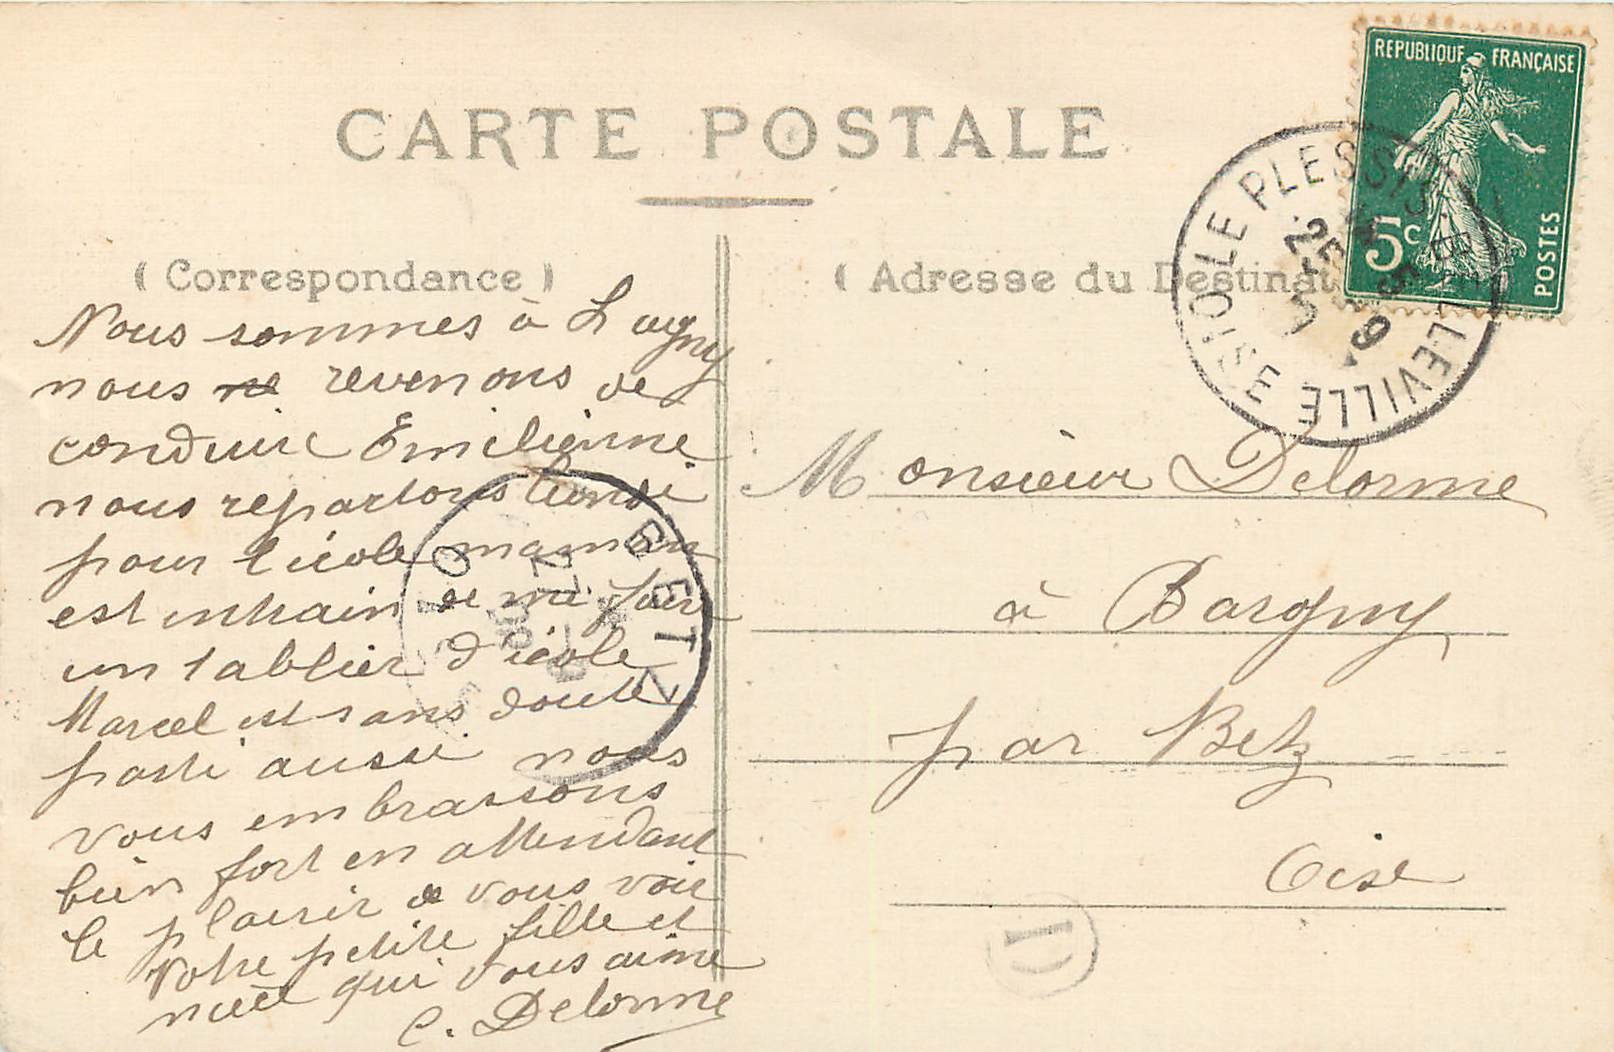 CARTE POSTALE
( Correspondance )
( Adresse du Destinat
REPUBLIQUE FRANÇAISE
5c
POSTES
LE PLESSIS BELLEVILLE
OISE
Nous sommes à Lagny
nous ne revenons de
conduire Emilienne
nous repartons lundi
pour l'école maman
est entrain de me faire
un tablier d'école
Marcel est sans doute
parti aussi nous
vous embrassons
bien fort en attendant
le plaisir de vous voir
Votre petite fille et
nièce qui vous aime
C. Delorme
BETZ
OISE
Monsieur Delorme
à Bargny
par Betz
Oise
D